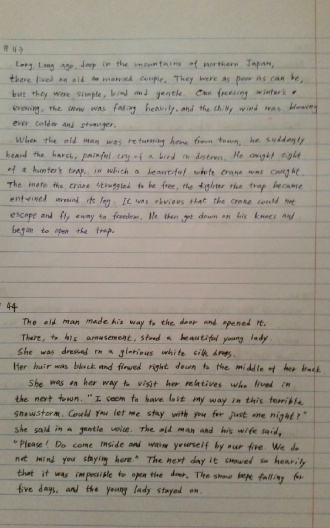 # 43
Long, Long ago, deep in the mountains of northern Japan,
there lived an old married couple. They were as poor as can be,
but they were simple, kind and gentle. One freezing winter's
evening, the snow was falling heavily, and the chilly wind was blowing
ever colder and stronger.
When the old man was returning home from town, he suddenly
heard the harsh, painful cry of a bird in distress. He caught sight
of a hunter's trap, in which a beautiful white crane was caught.
The more the crane struggled to be free, the tighter the trap became
entwined around its leg. It was obvious that the crane could not
escape and fly away to freedom. He then got down on his knees and
began to open the trap.
44
The old man made his way to the door and opened it.
There, to his amusement, stood a beautiful young lady.
She was dressed in a glorious white silk
Her hair was black and flowed right down to the middle of her back.
She was on her way to visit her relatives who lived in
the next town. "I seem to have lost my way in this terrible
snowstorm. Could you let me stay with you for just one night?"
she said in a gentle voice. The old man and his wife said,
"Please! Do come inside and warm yourself by our fire. We do
not mind you staying here." The next day it snowed so heavily
that it was impossible to open the door. The snow kept falling for
five days, and the young lady stayed on.